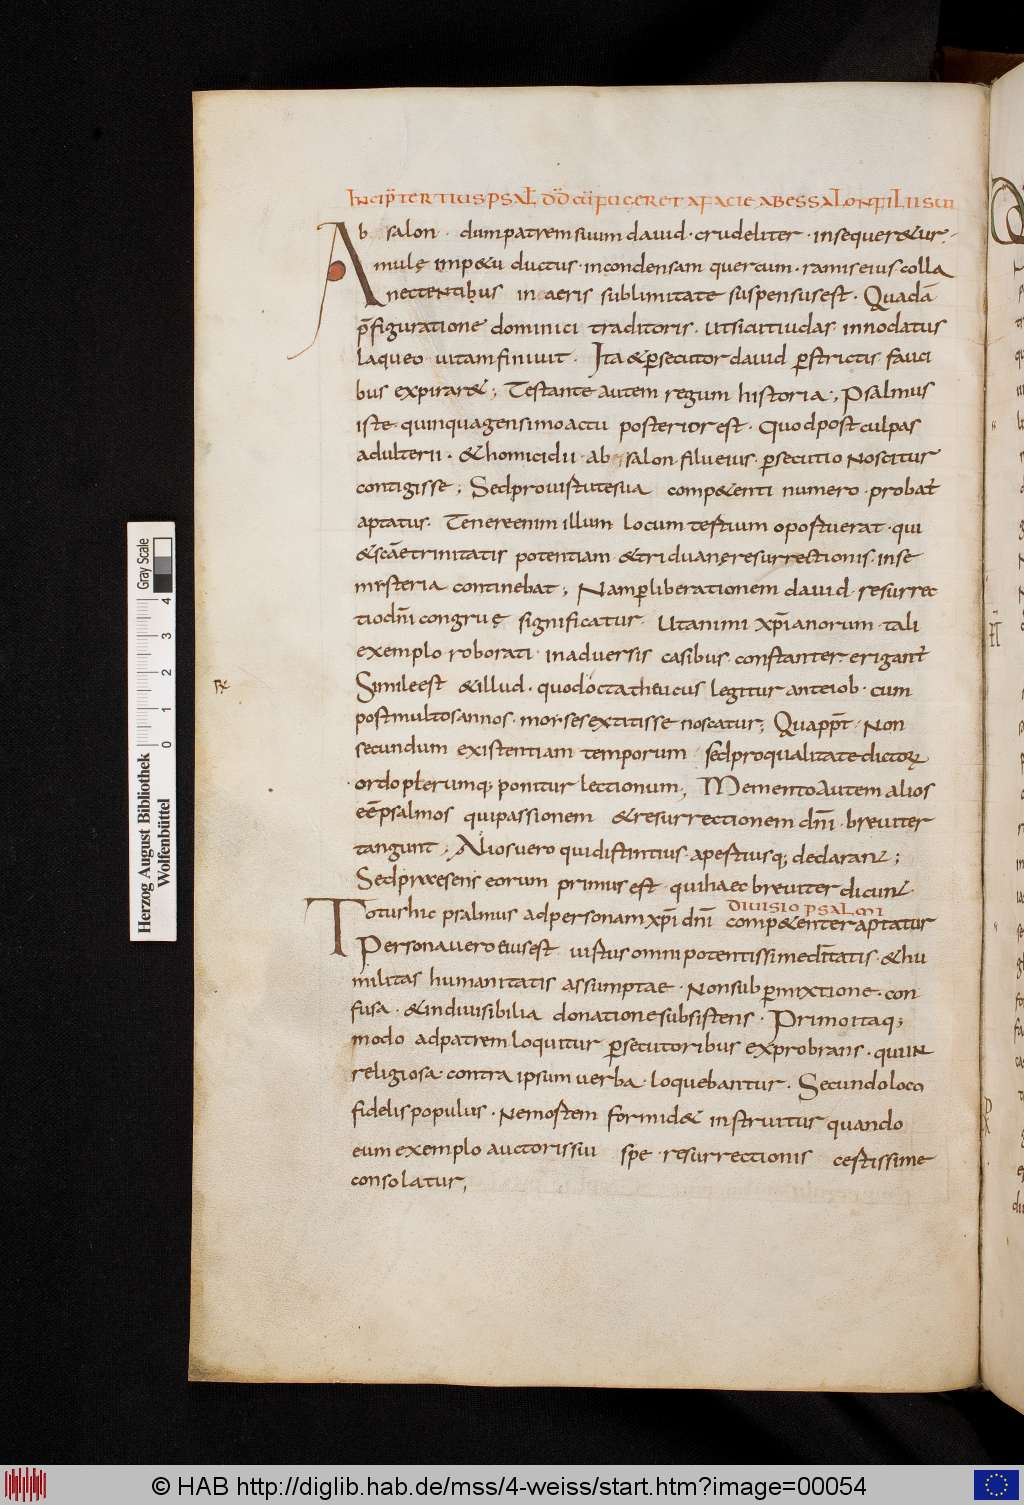 INCIP̄ TERTIUS PSAL̄ DD̄ CŪ FUGERET A FACIE ABESSALON FILII SUI
Ab salon · dum patrem suum dauid · crudeliter · insequer&ur ·
mulę imp&u ductus · in condensam quercum · ramis eius · colla
nectentibus in aeris sublimitate suspensus est · Quadā
p̄figuratione dominici traditoris · ut sicut iudas · innodatus
laqueo uitam finiuit · Ita & ꝑsecutor dauid ꝑstrictis fauci
bus expirar& ; Testante autem regum historia ; Psalmus
iste · quinquagensimo actu posterior est · Quod post culpas
adulterii · & homicidii · ab salon filii eius · ꝑsecutio noscitur
contigisse ; Sed pro uirtute sua comp&enti numero · probat̄
aptatus · Tenere enim illum locum tertium oportuerat · qui
& scāe trinitatis potentiam & triduanę resurrectionis · in se
mysteria continebat ; Nam ꝑ liberationem dauid · resurrec
tio dn̄i congruę significatur · Ut animi xp̄ianorum · tali
exemplo roborati · in aduersis casibus · constanter erigant̄
Simile est & illud · quod octatheucus legitur ante iob · cum
post multos annos · moyses extitisse noscatur ; Quapp̄t · Non
secundum existentiam temporum sed pro qualitate dictoꝝ
· ordo pler̄umq; ponitur lectionum ; Memento autem alios
eē psalmos qui passionem & resurrectionem dn̄i · breuiter
tangunt ; Alios uero qui distinctius · apertiusq; declarant ;
Sed praesens eorum primus est · qui haec breuiter dicunt
DIUISIO PSALMI
Totus hic psalmus ad personam xp̄i dn̄i comp&enter aptatur
Persona uero eius est uirtus omnipotentissime diūitatis · & hu
militas humanitatis assumptae · Non sub ꝑmixtione · con
fusa · & indiuisibilia donatione subsistens · Primo itaq;
modo ad patrem loquitur ꝑsecutoribus exprobrans · qui in
religiosa · contra ipsum uerba · loquebantur · Secundo loco
fidelis populus · ne mortem formid& instruitur quando
eum exemplo auctoris sui spe · resurrectionis certissime
consolatur ;
Herzog August Bibliothek
Wolfenbüttel
0 1 2 3 4
Gray Scale
© HAB http://diglib.hab.de/mss/4-weiss/start.htm?image=00054